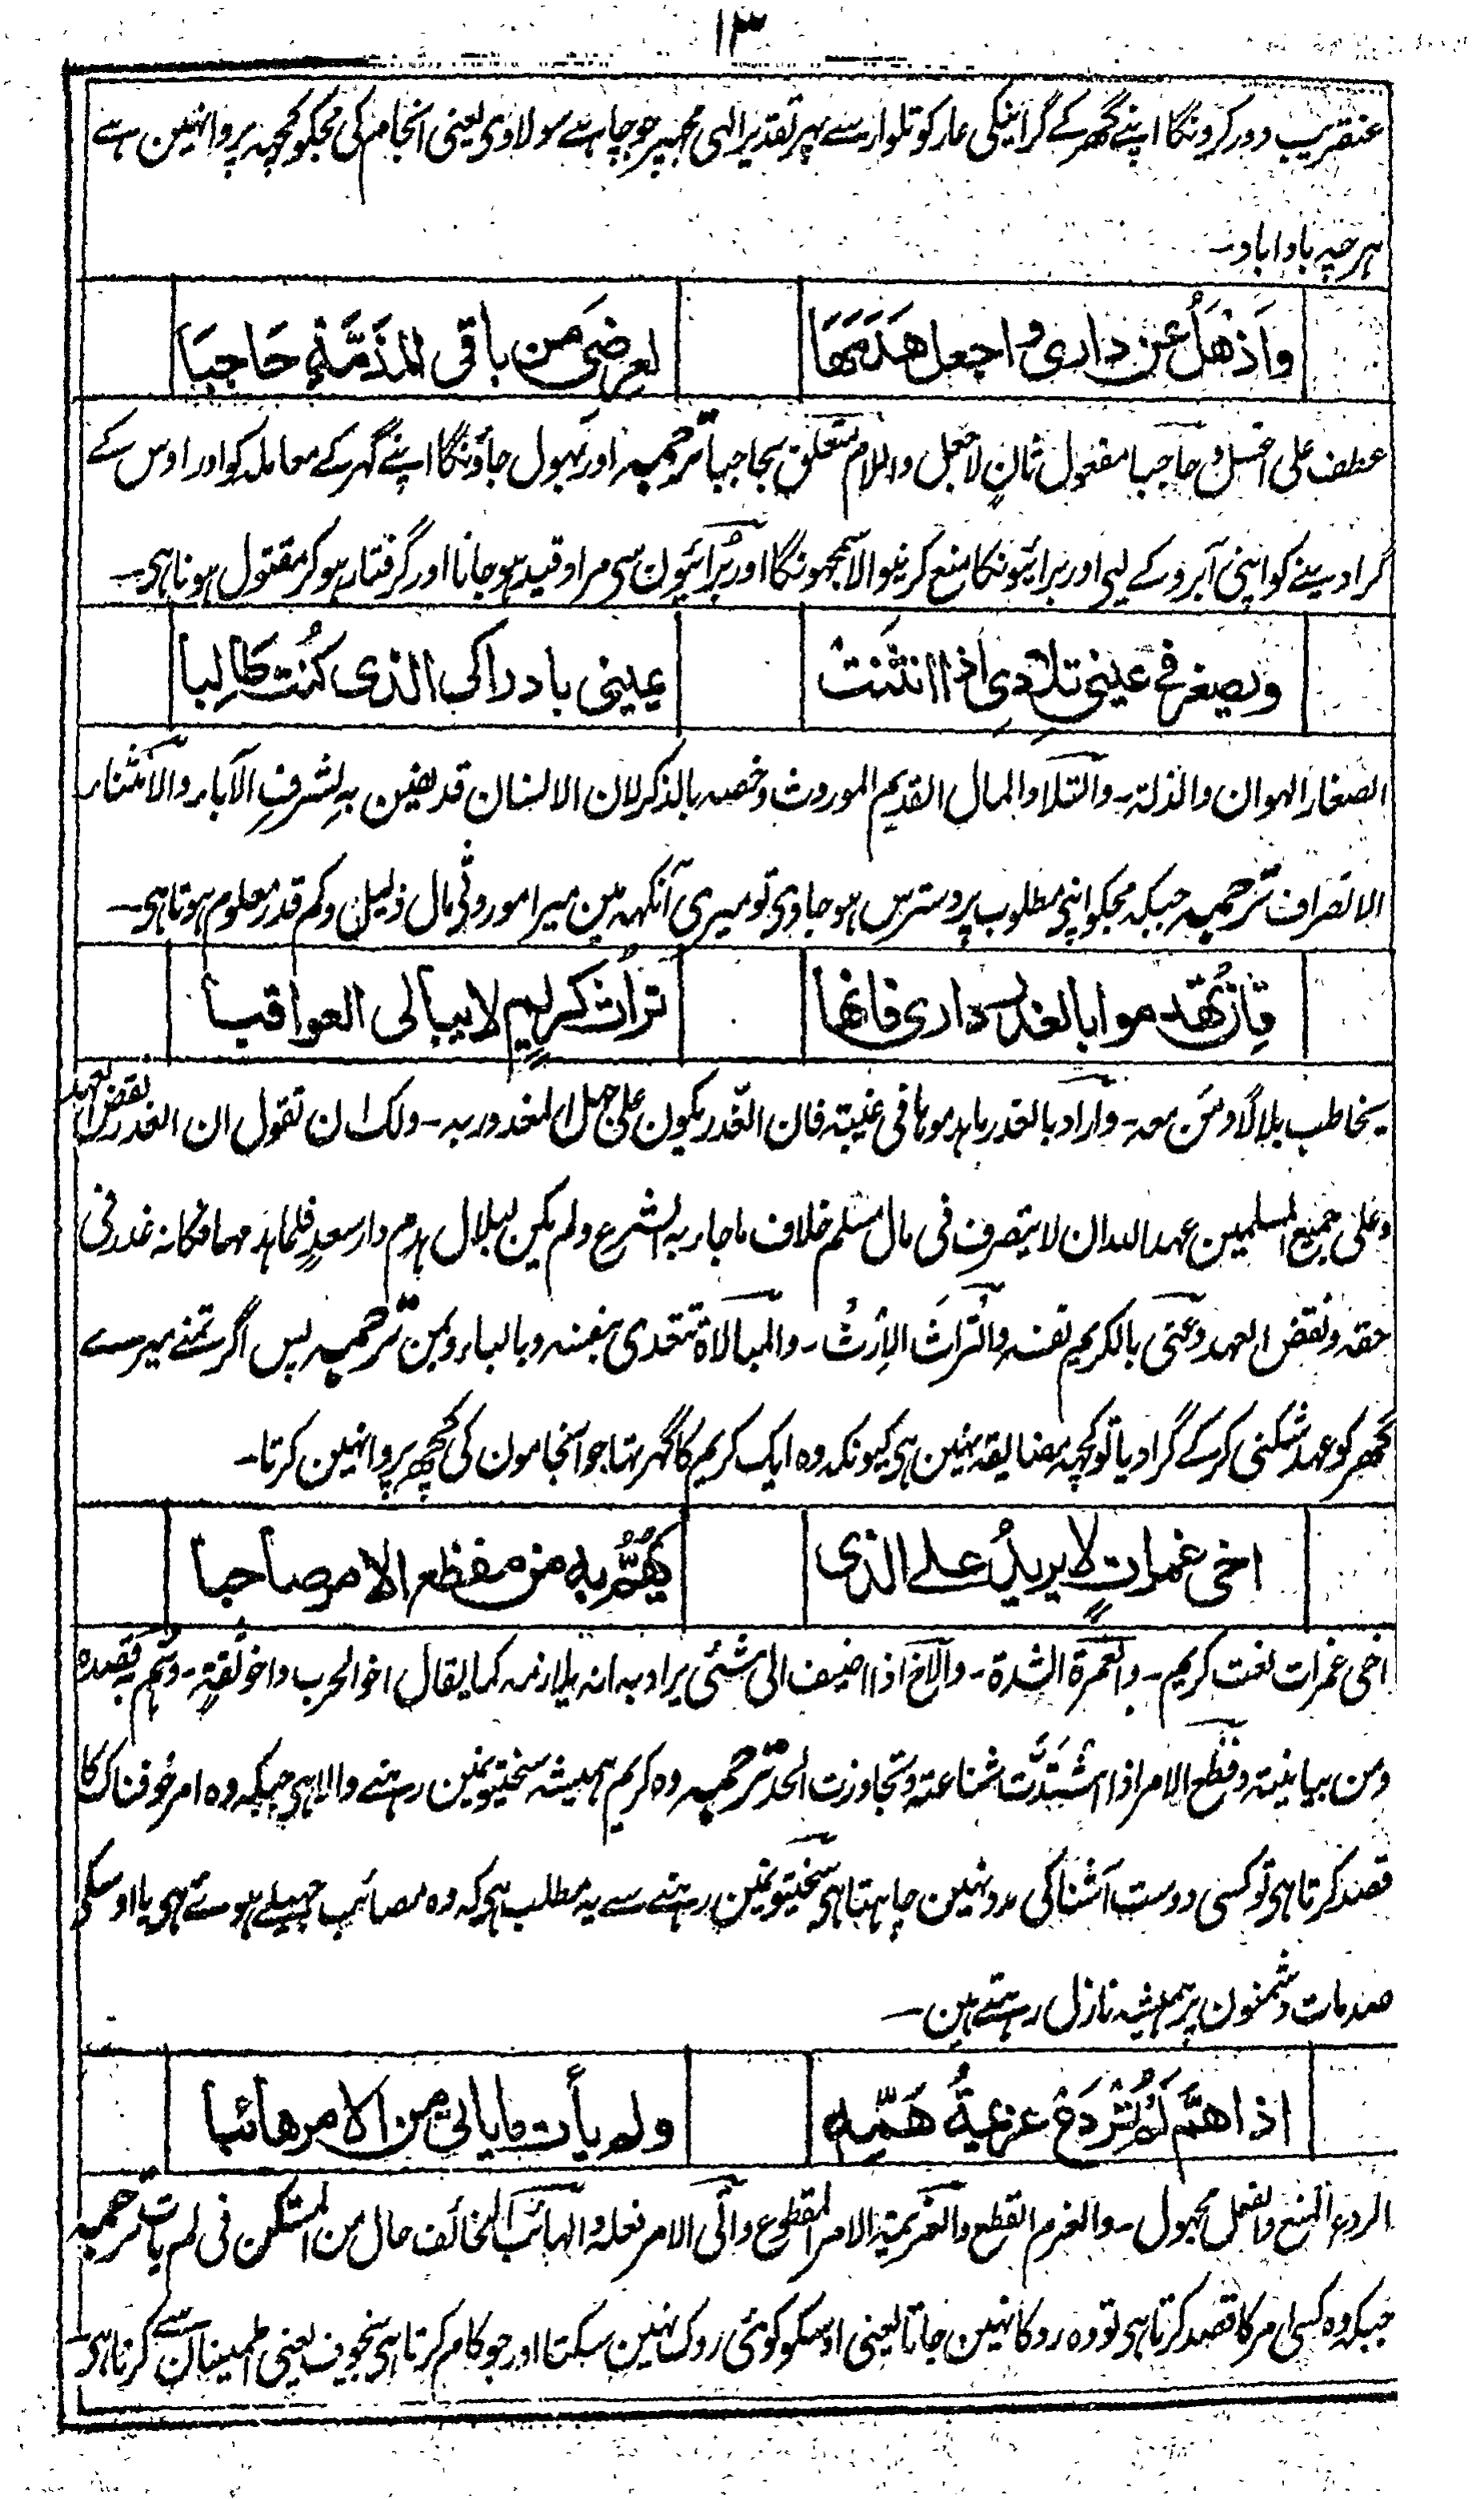 ۱۳
عنقریب دور کرونگا اپنے گھر کے گرانیکی عار کو تلوار سے پہر تقدیر الہی مجہپر جو چاہے سو لاوی یعنی انجام کی مجکو کچہہ پروا نہین ہے
ہر چہ بادا باد۔
وَاَذْهَلُ عن داری و اجعل هَدَمَهَا لعِرضیَ من باقی المَذَمَّةِ حَاجِبَا
عطف علی اغسل و حاجبا مفعول ثانٍ لاجعل واللام متعلق بحاجبا ترجمہ اور بہول جاؤنگا اپنے گہر کے معاملہ کو اور اوس کے
گرا دینے کو اپنی آبرو کے لیی اور برائیونکا منع کرنیوالا سمجہونگا اور بُرائیون سی مراد قید ہو جانا اور گرفتار ہو کر مقتول ہونا ہی۔
ویصغر فی عینی تلادی اذا انثنت یمینی بادراک الذی کُنت طَالِبا
الصغار الہوان والذلۃ۔ والتلاد المال القدیم الموروث وخصہ بالذکر لان الانسان قد یضن بہ لشرفِ الآباء والانثناء
الانصراف ترجمہ جبکہ مجکو اپنی مطلوب پر دسترس ہو جاوی تو میری آنکہہ مین میرا موروثی مال ذلیل و کم قدر معلوم ہوتا ہی۔
فاِن تُهْدموا بالغدر داری فانها تراث کریمٍ لا یبالی العواقبا
یخاطب بلالا ومَن معہ۔ واراد بالغدر ہاہدمونا فی غیبتہ فان الغدر یکون علی جہل المغدور بہ۔ ولک ان تقول ان الغدر نقض العہد
وعلی جمیع المسلمین عہد اللہ ان لا یتصرف فی مال مسلم خلاف ما جاء بہ الشرع ولم یکن لبلال ہدم دار سعدٍ فلما ہدمہا فکانہ غدر فی
حقہ ونقض العہد وعنی بالکریم نفسہ والتُراث الاِرث۔ والمبالاۃ تتعدی بنفسہ وبالباء وبمن ترجمہ پس اگر تمنے میرے
گھر کو عہد شکنی کر کے گرا دیا تو کچہہ مضایقہ نہین ہی کیونکہ وہ ایک کریم کا گہر تہا جو انجامون کی کچھ پروا نہین کرتا۔
اخی غمراتٍ لا یریدُ علی الذی یَهُمُّ به من مفظع الامر صاحبا
اخی غمرات نعت کریم۔ والغمرۃ الشدۃ۔ والاخ اذا اضیف الی شئی یراد بہ انہ یلازمہ کما یقال اخو الحرب واخو ثقۃٍ۔ وہَمَّ بہ قصدہ
ومن بیانیۃ وفظع الامر اذا اشتدت شناعتہ وتجاوزت الحد ترجمہ وہ کریم ہمیشہ سختیونمین رہنے والا ہی جبکہ وہ امر خوفناک کا
قصد کرتا ہی تو کسی دوست آشنا کی مدد نہین چاہتا ہی سختیونمین رہتے سے یہ مطلب ہی کہ وہ مصائب جہیلے ہوئے ہی یا اوسکی
صدمات دشمنون پر ہمیشہ نازل رہتے ہین۔
اذا همَّ لم تُردَع عزیمةُ هَمّه ولم یأت ما یاتی من الامر هائبا
الردع المنع والفعل مجہول۔ والعزم القطع والعزیمۃ الامر المقطوع واتی الامر فعلہ والہائب الخائف حال من المستکن فی لم یات ترجمہ
جبکہ وہ کسی امر کا قصد کرتا ہی تو وہ روکا نہین جاتا یعنی اوسکو کوئی روک نہین سکتا اور جو کام کرتا ہی بیخوف یعنی اطمینان سے کرتا ہی۔